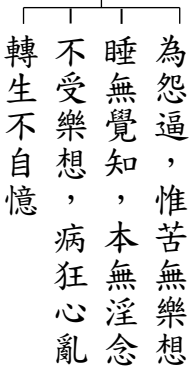 為怨逼，惟苦無樂想
睡無覺知，本無淫念
不受樂想，病狂心亂
轉生不自憶